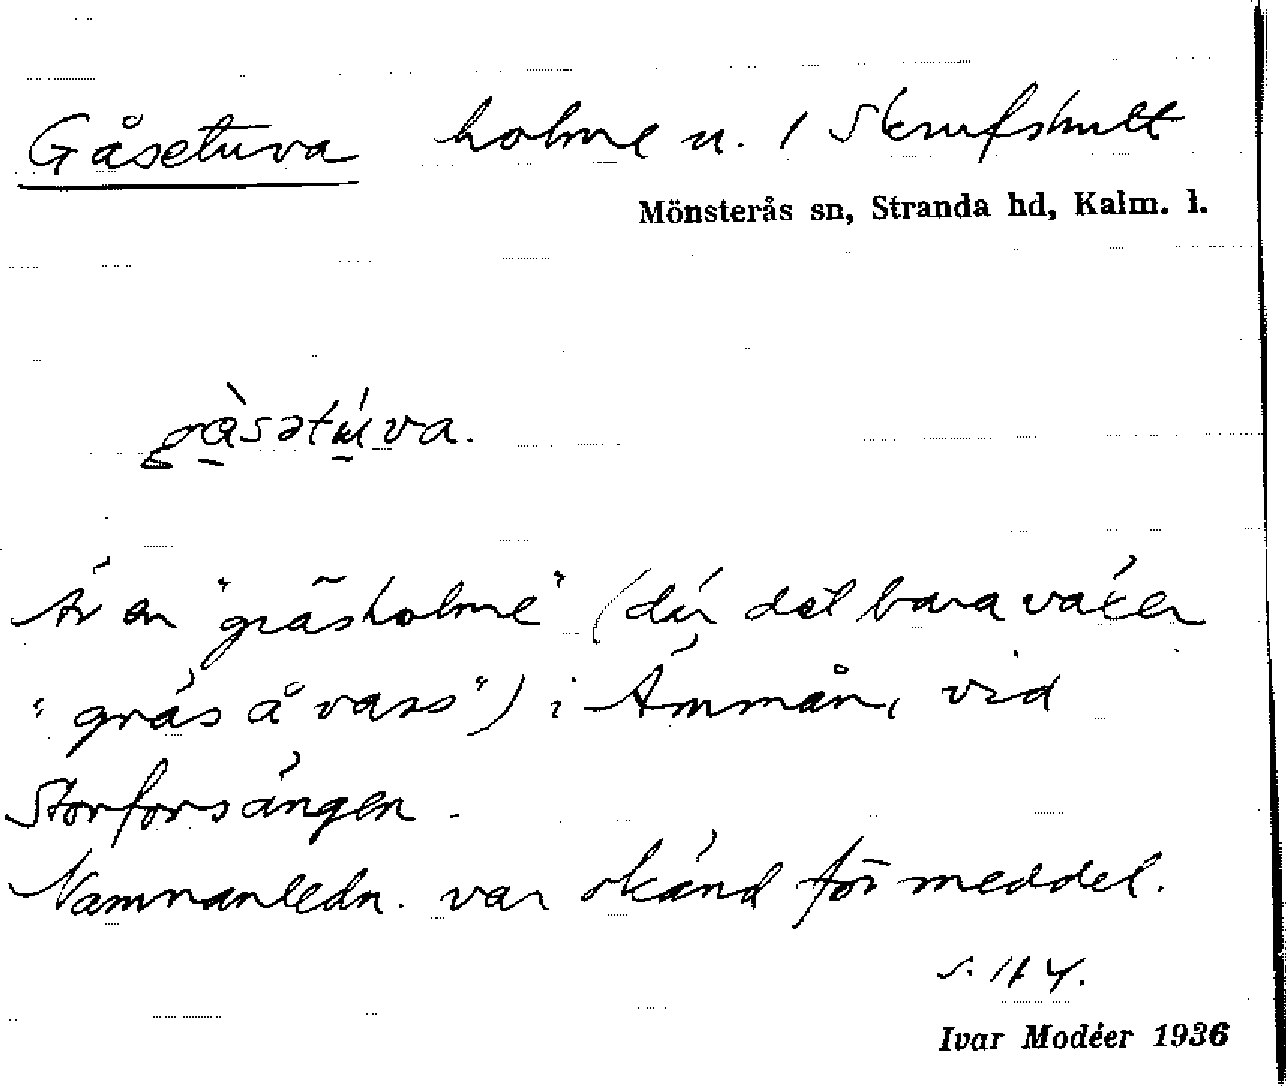 Gåsetuva holme u. 1 Skrufshult
Mönsterås sn, Stranda hd, Kalm. l.
gàsətúva.
Är en "gräsholme" (där det bara växer
"gräs å vass") i Ämmån, vid
Storforsängen.
Namnanledn. var okänd för meddel.
s. 114.
Ivar Modéer 1936